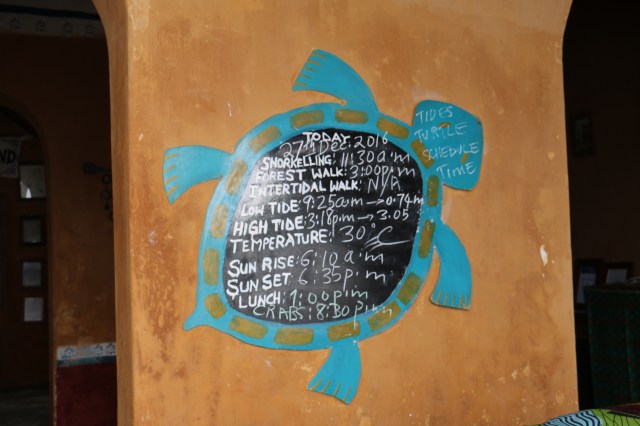 TIDES
TURTLE
SCHEDULE
TIME
TODAY
27th Dec. 2016
SNORKELLING: 11:30 a·m
FOREST WALK: 3:00 p·m
INTERTIDAL WALK: N/A
LOW TIDE: 9:25 a·m → 0.74m
HIGH TIDE: 3:18 p·m → 3.05
TEMPERATURE: 30°C
SUN RISE: 6:10 a·m
SUN SET: 6:35 p·m
LUNCH: 1:00 p·m
CRABS: 8:30 p·m
ND